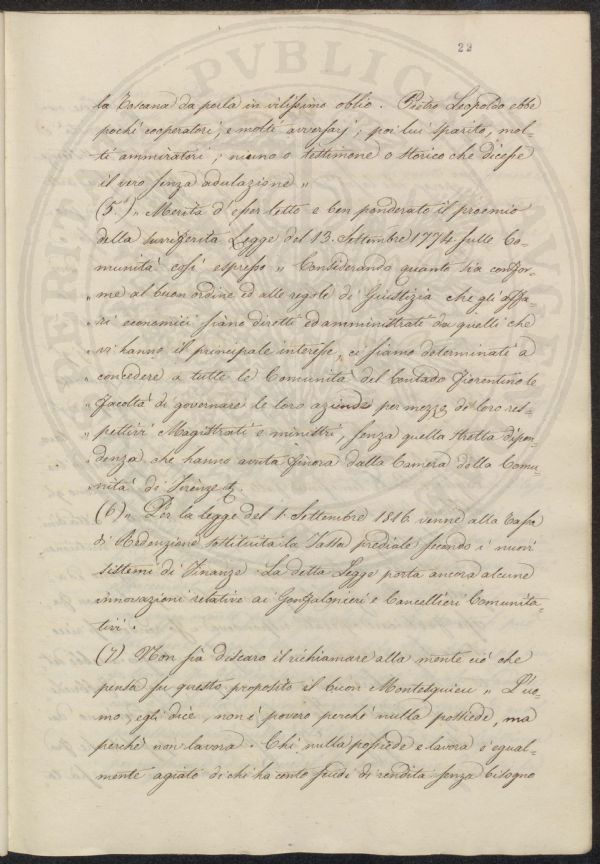 22
la Toscana da porla in vilissimo oblio. Pietro Leopoldo ebbe
pochi cooperatori, e molti avversarj; poi lui sparito, mol-
ti ammiratori; niuno o testimone o storico che dicesse
il vero senza adulazione „
(5.) „ Merita d'esser letto e ben ponderato il proemio
della surriferita Legge del 13. Settembre 1774. sulle Co-
munità così espresso „ Considerando quanto sia confor-
„ me al buon ordine ed alle regole di Giustizia che gli affa-
„ ri economici siano diretti ed amministrati da quelli che
„ vi hanno il principale interesse, ci siamo determinati a
„ concedere a tutte le Comunità del Contado Fiorentino le
„ facoltà di governare le loro aziende per mezzo de loro res-
„ pettivi Magistrati e ministri, senza quella stretta dipen-
„ denza che hanno avuta finora dalla Camera della Comu-
„ nità di Firenze
(6) „ Per la legge del 1. Settembre 1816 venne alla Tassa
di Redenzione sostituita la Tassa prediale secondo i nuovi
sistemi di Finanze. La detta Legge porta ancora alcune
innovazioni relative ai Gonfalonieri e Cancellieri Comunita-
tivi.
(7) Non sia discaro il richiamare alla mente ciò che
pensa su questo proposito il buon Montesquieu „ L'uo-
mo, egli dice, non è povero perchè nulla possiede, ma
perchè non lavora. Chi nulla possiede e lavora è egual-
mente agiato di chi ha cento scudi di rendita senza bisogno
PVBLICA